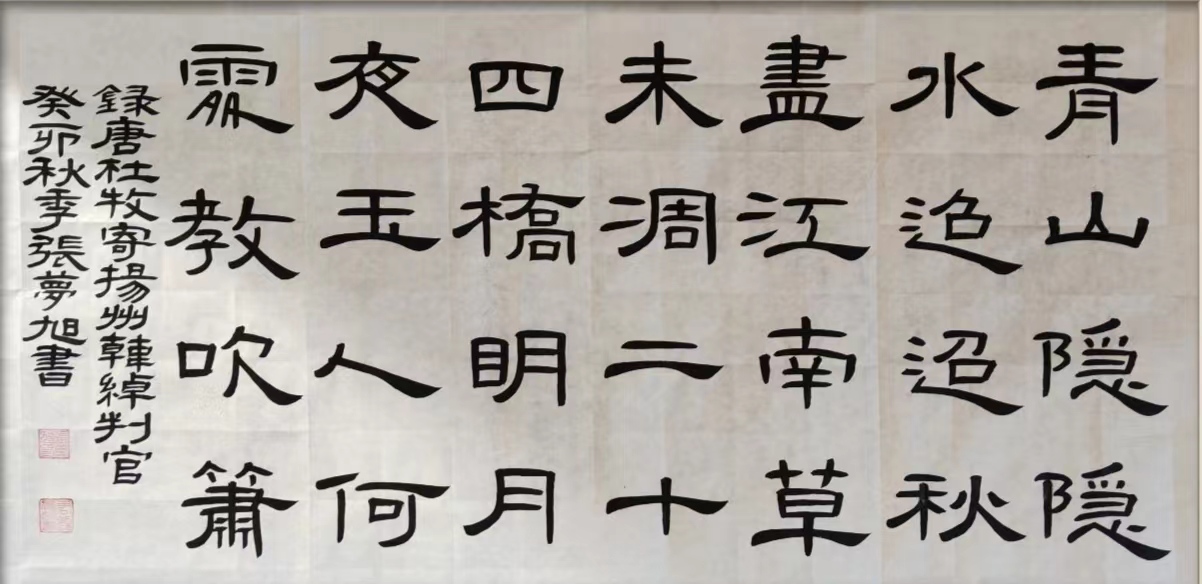 青山隐隐
水迢迢秋
盡江南草
未凋二十
四橋明月
夜玉人何
處教吹簫
録唐杜牧寄揚州韓綽判官
癸卯秋季張夢旭書